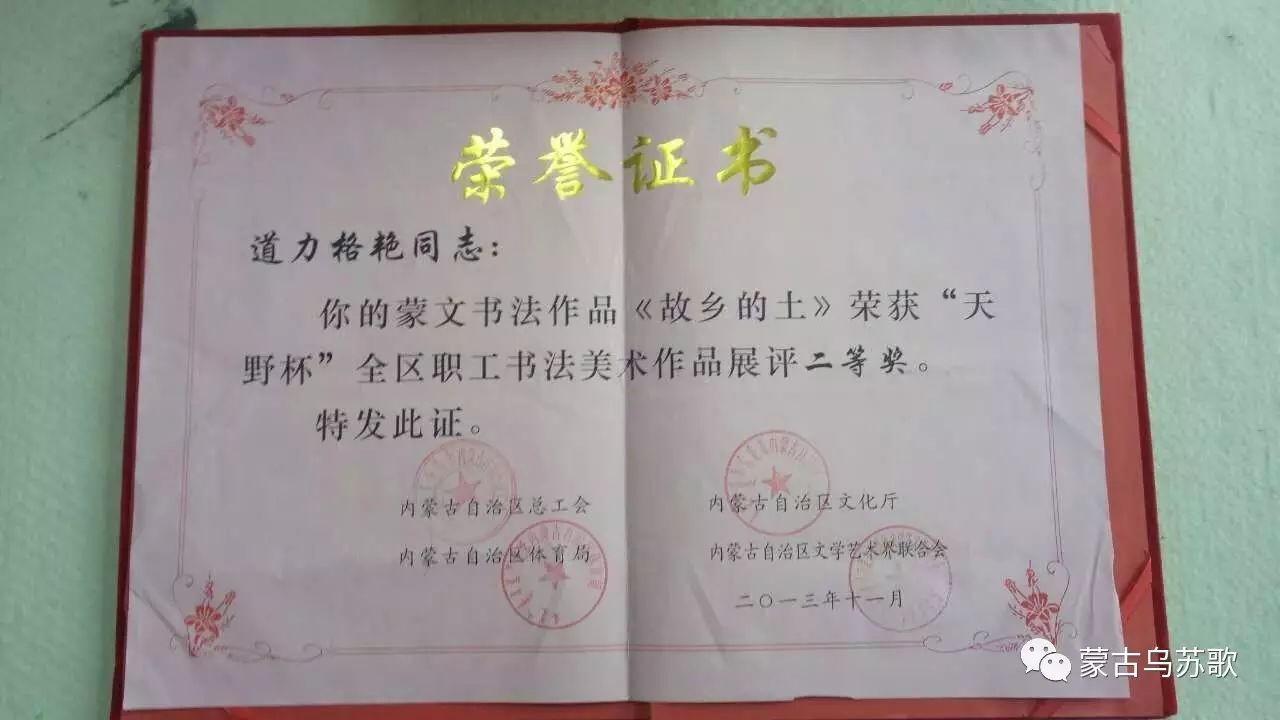 荣誉证书
道力格艳同志：
你的蒙文书法作品《故乡的土》荣获“天
野杯”全区职工书法美术作品展评二等奖。
特发此证。
内蒙古自治区总工会
内蒙古自治区文化厅
内蒙古自治区体育局
内蒙古自治区文学艺术界联合会
二〇一三年十一月
蒙古乌苏歌